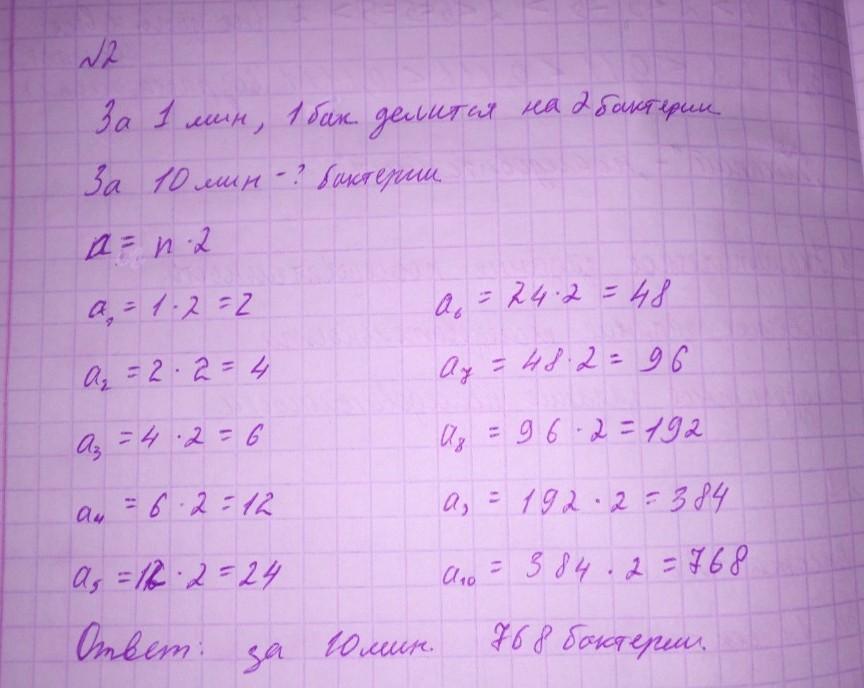 №2
За 1 мин, 1 бак. делится на 2 бактерии
За 10 мин - ? бактерии
a = n · 2
a₁ = 1 · 2 = 2
a₂ = 2 · 2 = 4
a₃ = 4 · 2 = 6
a₄ = 6 · 2 = 12
a₅ = 12 · 2 = 24
a₆ = 24 · 2 = 48
a₇ = 48 · 2 = 96
a₈ = 96 · 2 = 192
a₉ = 192 · 2 = 384
a₁₀ = 384 · 2 = 768
Ответ: за 10 мин. 768 бактерии.